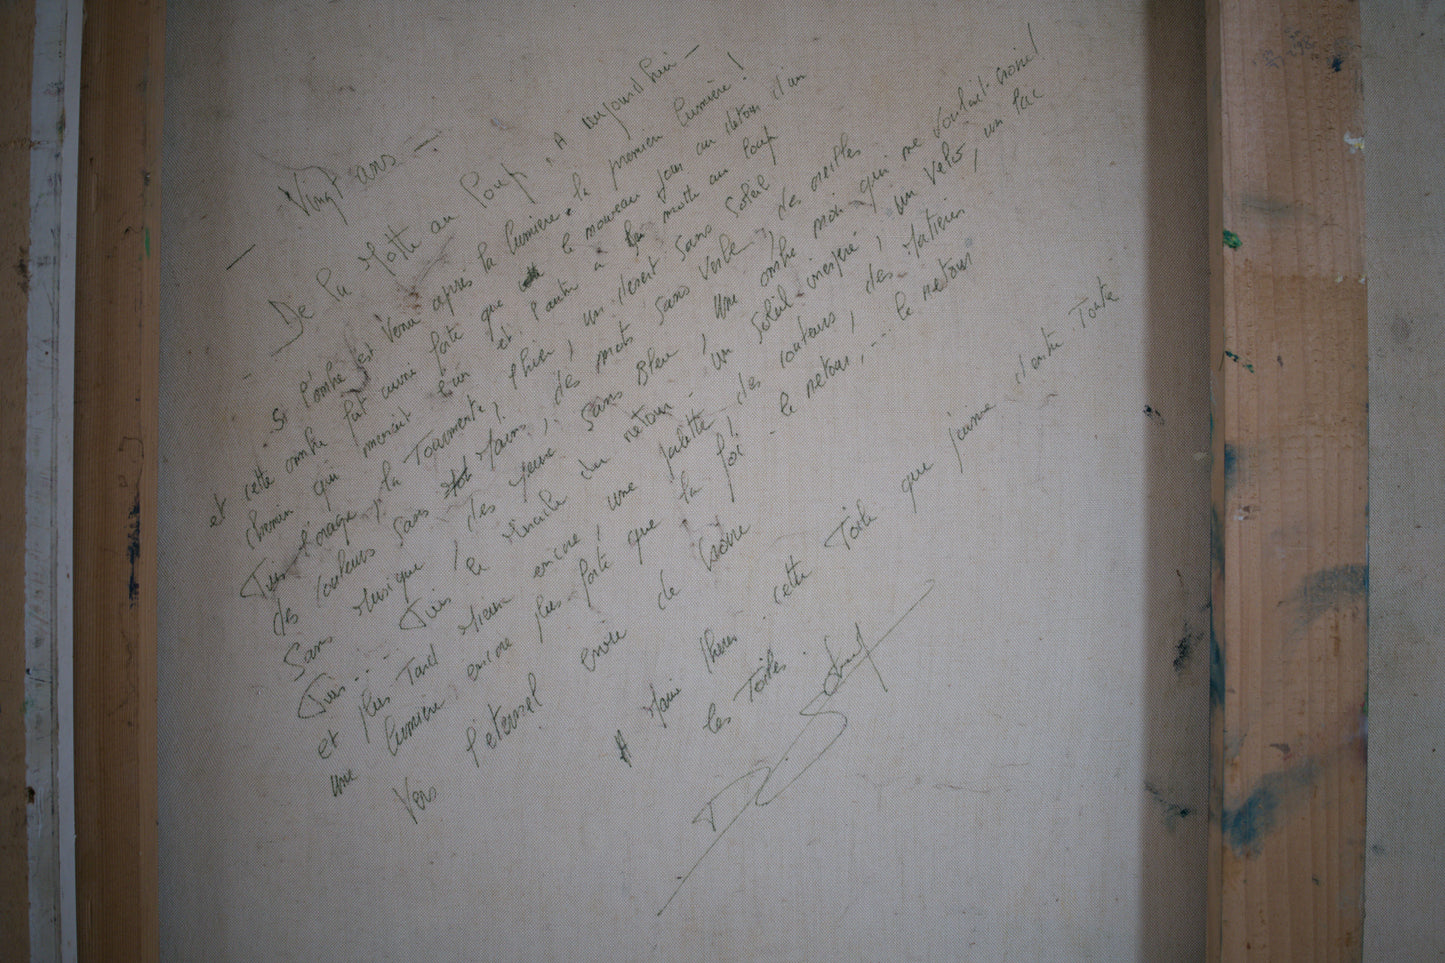 — Vingt ans —
De la Motte au Loup, A aujourd'hui —
. Si l'ombre est venue après la lumière, la première lumière !
et cette ombre fut aussi forte que le nouveau jour au détour d'un
chemin qui menait l'un et l'autre à la motte au loup
Puis l'orage, la Tourmente, l'hier, un desert sans Soleil
des couleurs sans Mains, des mots sans Verbe, des oreilles
Sans Musique, des yeux sans Bleu, une ombre moi qui me voulait croire !
Puis... Puis le Miracle du retour - un Soleil inespéré, un Vélo, un lac
et plus Tard Mieux encore, une palette, des couleurs, des Matières
une lumière encore plus forte que la foi, - le retour, ... le retour
Vers l'éternel envie de croire
A Marie cette Toile que j'aime d'entre Toute
les Toiles.